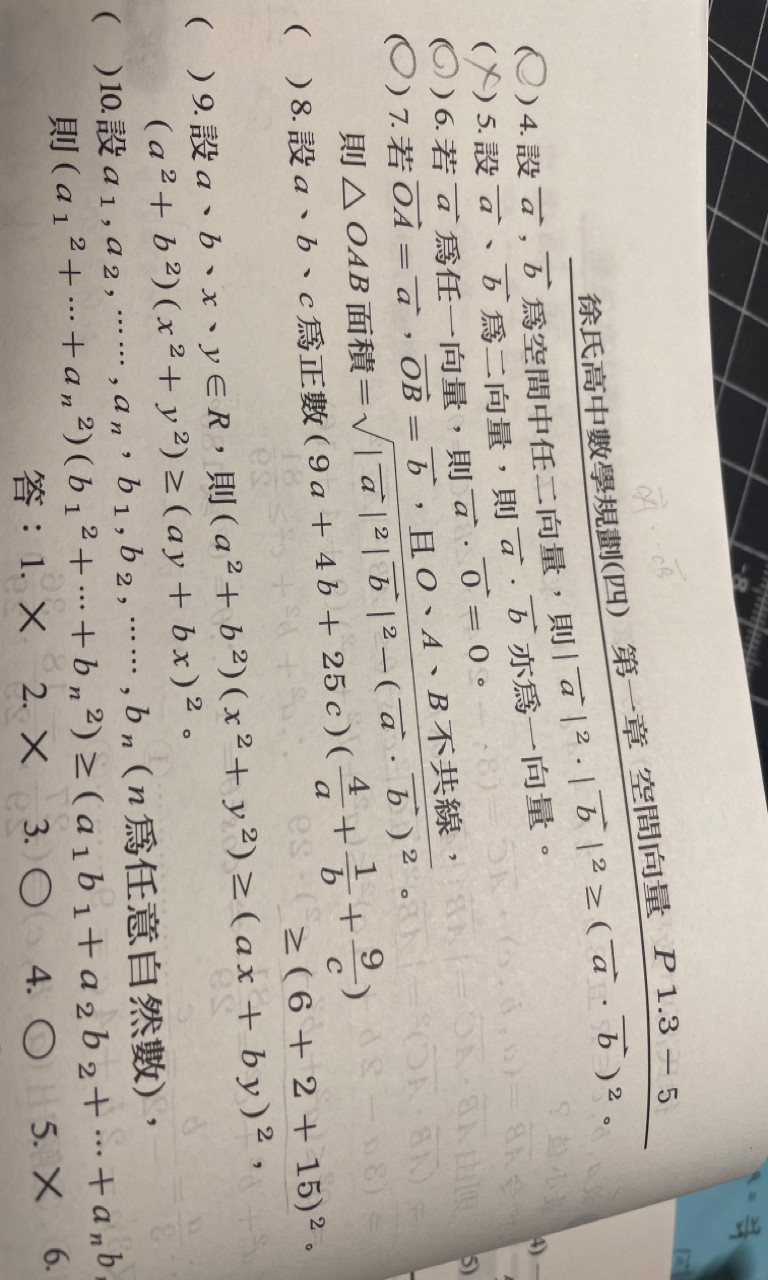 徐氏高中數學規劃(四) 第一章 空間向量 P 1.3－5
(○) 4. 設 $\vec{a}$，$\vec{b}$ 為空間中任二向量，則 |$\vec{a}$|²·|$\vec{b}$|² ≥ ($\vec{a}$·$\vec{b}$)²。
(×) 5. 設 $\vec{a}$、$\vec{b}$ 為二向量，則 $\vec{a}$·$\vec{b}$ 亦為一向量。
(○) 6. 若 $\vec{a}$ 為任一向量，則 $\vec{a}$·$\vec{0}$ = 0。
(○) 7. 若 $\overrightarrow{OA}$ = $\vec{a}$，$\overrightarrow{OB}$ = $\vec{b}$，且 O、A、B 不共線，
則 △OAB 面積 = $\sqrt{|\vec{a}|^2|\vec{b}|^2-(\vec{a}\cdot\vec{b})^2}$。
( ) 8. 設 a、b、c 為正數 (9a + 4b + 25c)($\frac{4}{a}$ + $\frac{1}{b}$ + $\frac{9}{c}$)
≥ (6 + 2 + 15)²。
( ) 9. 設 a、b、x、y ∈ R，則 (a² + b²)(x² + y²) ≥ (ax + by)²，
(a² + b²)(x² + y²) ≥ (ay + bx)²。
( ) 10. 設 a₁, a₂, ……, aₙ, b₁, b₂, ……, bₙ (n 為任意自然數)，
則 (a₁² + … + aₙ²)(b₁² + … + bₙ²) ≥ (a₁b₁ + a₂b₂ + … + aₙb
答：1. × 2. × 3. ○ 4. ○ 5. × 6.